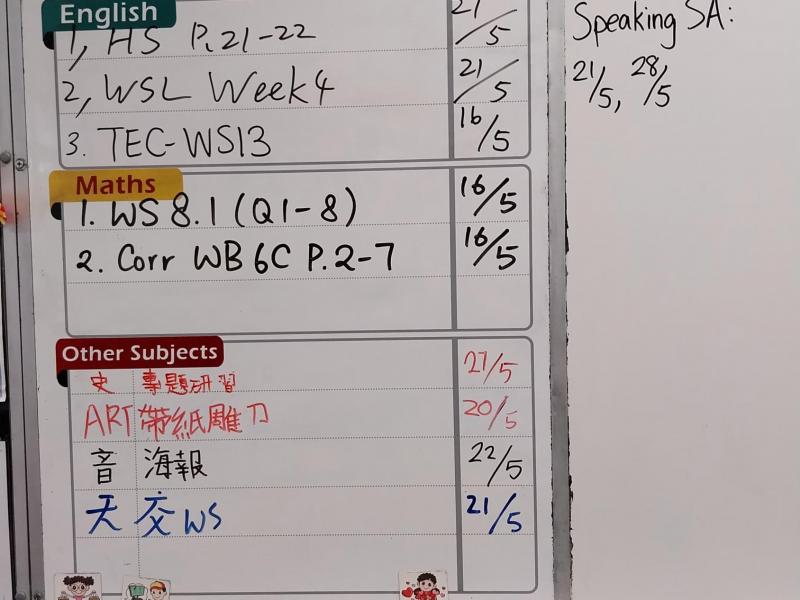 English
1, HS P.21-22 21/5
2, WSL Week4 21/5
3. TEC-WS13 16/5
Maths
1. WS 8.1 (Q1-8) 16/5
2. Corr WB 6C P.2-7 16/5
Other Subjects
史 專題研習 27/5
ART 帶紙雕刀 20/5
音 海報 22/5
天 交WS 21/5
Speaking SA:
21/5, 28/5